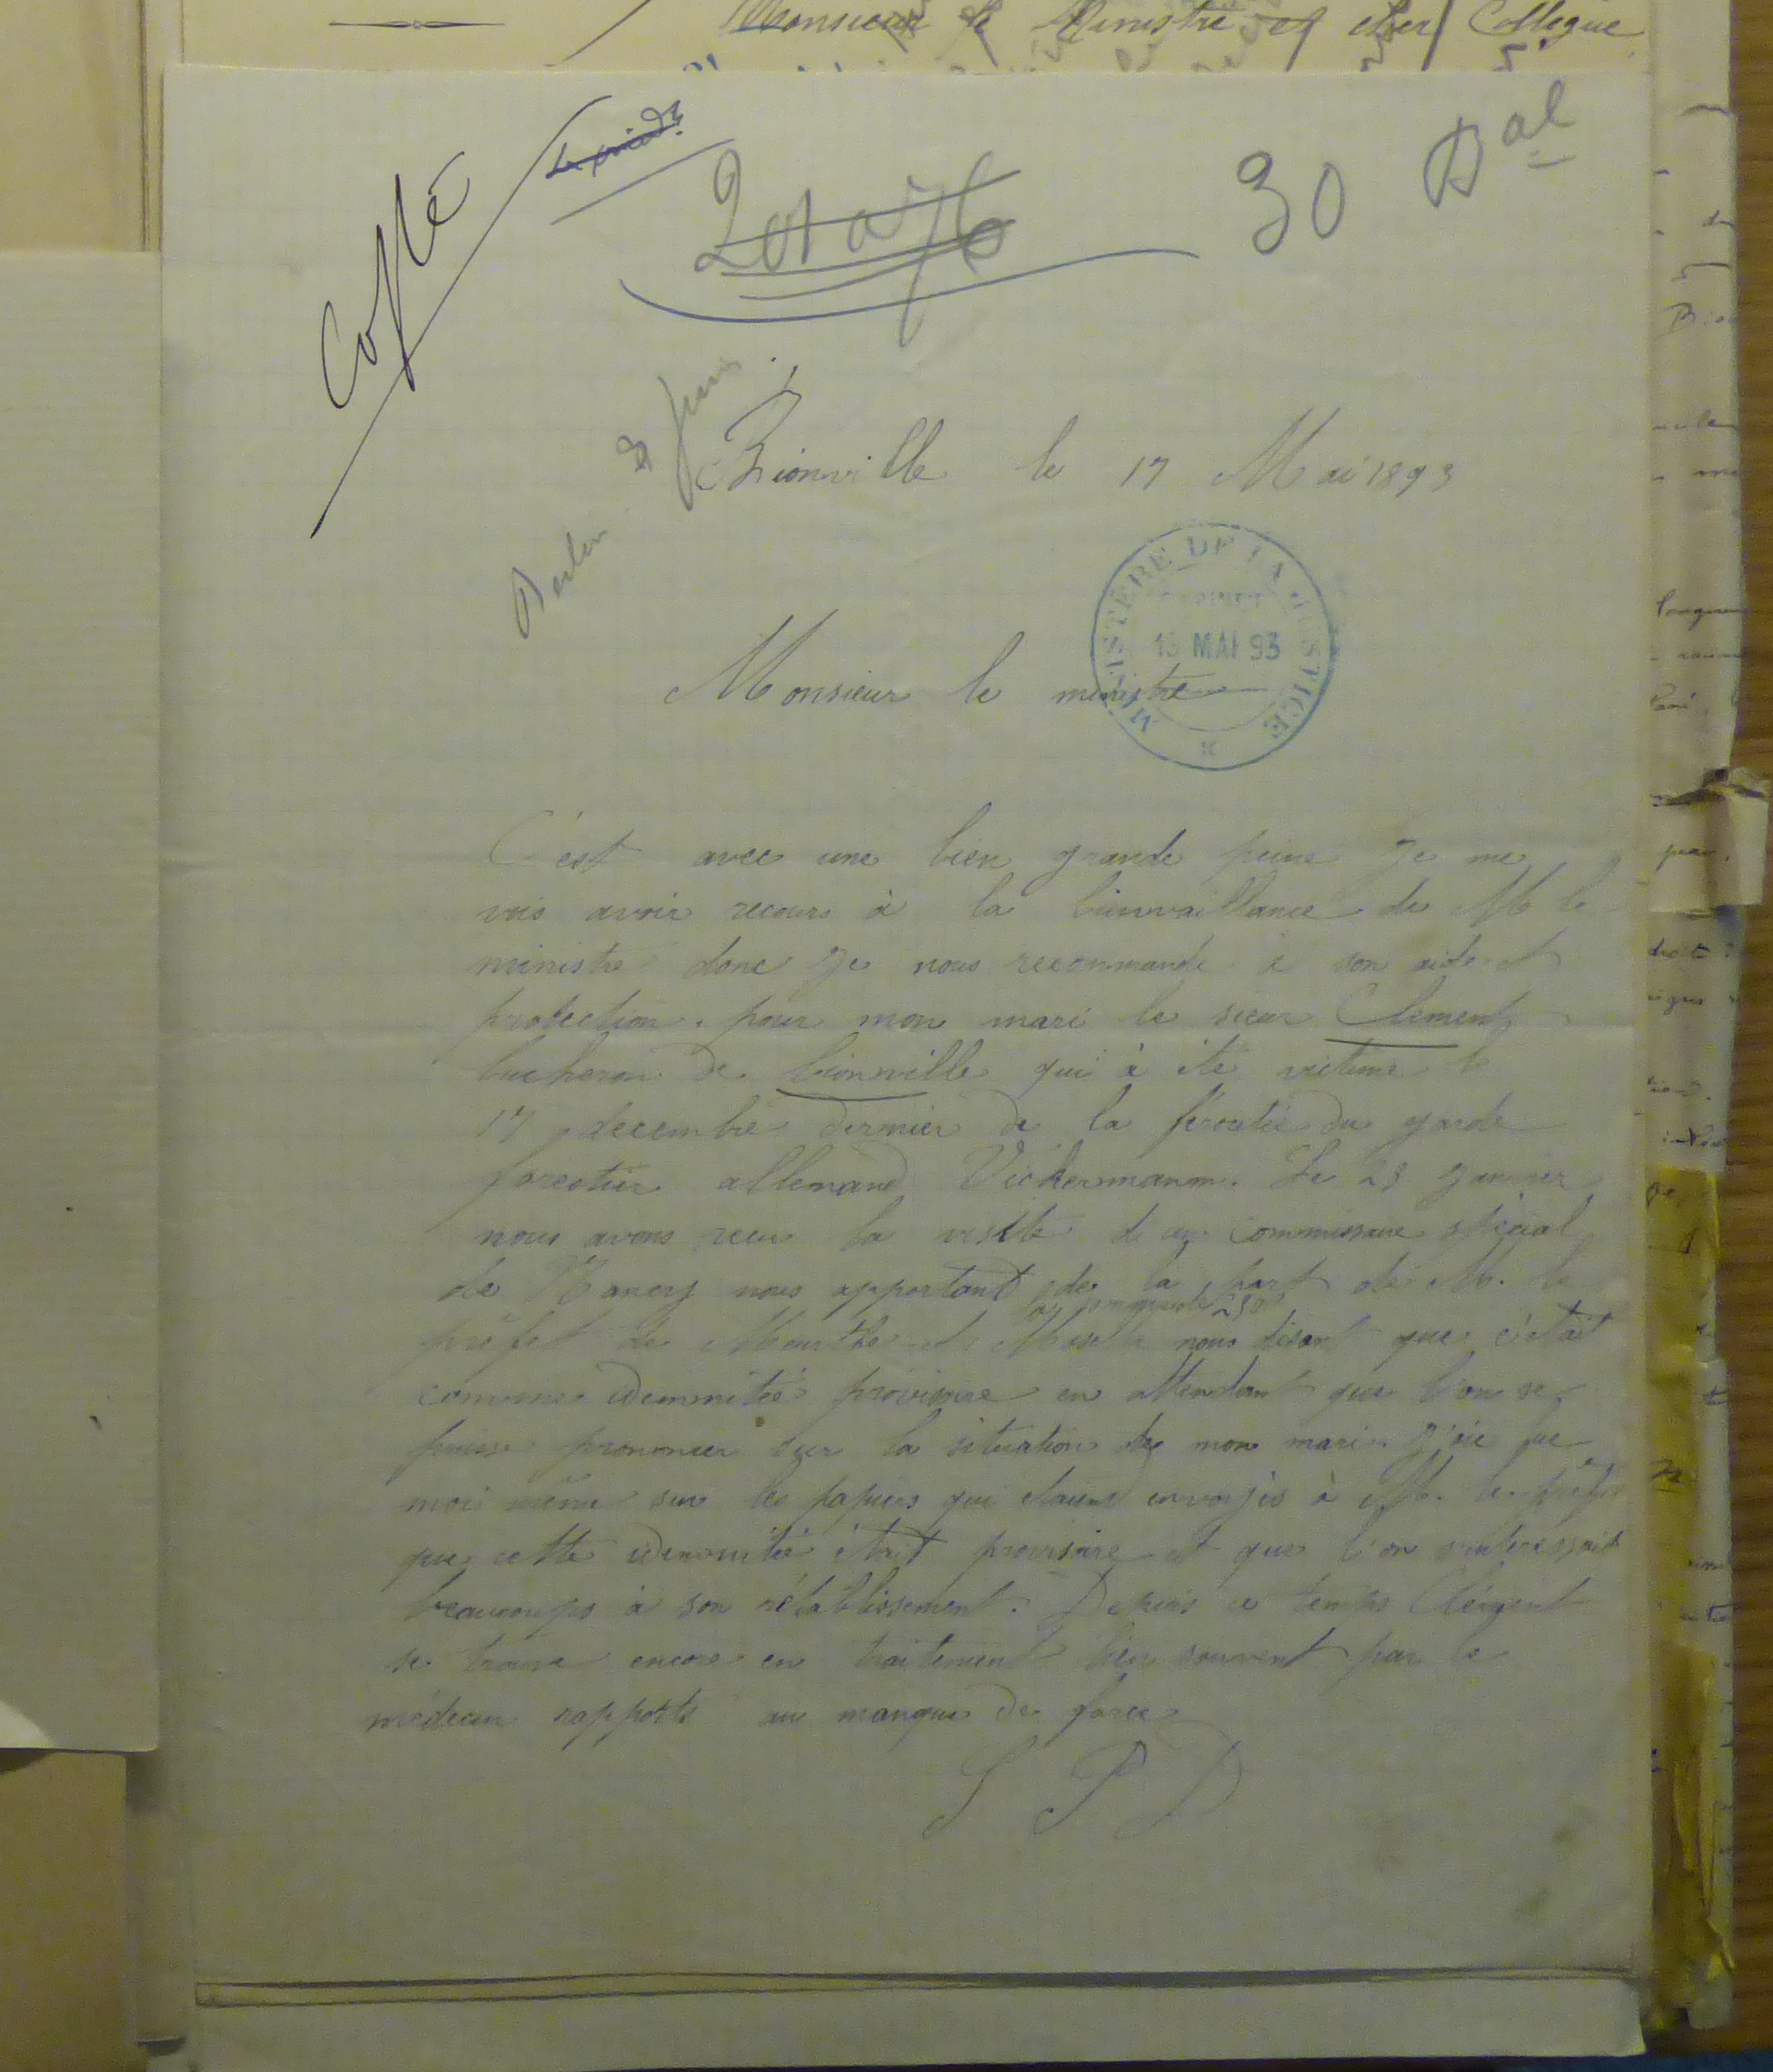 Monsieur le Ministre et cher Collègue
Copié
30 Bal
Berlin 3 Juin
Bionville le 17 Mai 1893
MINISTÈRE DE LA JUSTICE
MAI 93
Monsieur le ministre
C'est avec une bien grande peine je me
vois avoir recours à la bienvaillance de M le
ministre donc je nous recommande à son aide et
protection. pour mon mari le sieur Clement
bucheron de bionville qui à été victime le
17 decembre dernier de la férocité du garde
forestier allemand Vickermann. Le 23 janvier
nous avons reçu la visite d'un commissaire spécial
de Nancy nous apportant de la part de M. le
la somme de 250f
préfet de Meurthe et Moselle nous disant que c'était
comme idemnitée provisoire en attendant que l'on se
puisse prononcer sur la situation de mon mari. j'ai
moi même sur les papiers qui étaient envoyés à M. le préfet
que cette idemnitée était provisoire et que l'on s'intéressait
beaucoups à son rétablissement. Depuis ce temps Clément
se trouve encore en traitement bien souvent par le
médecin rapports au manque de force
S P D